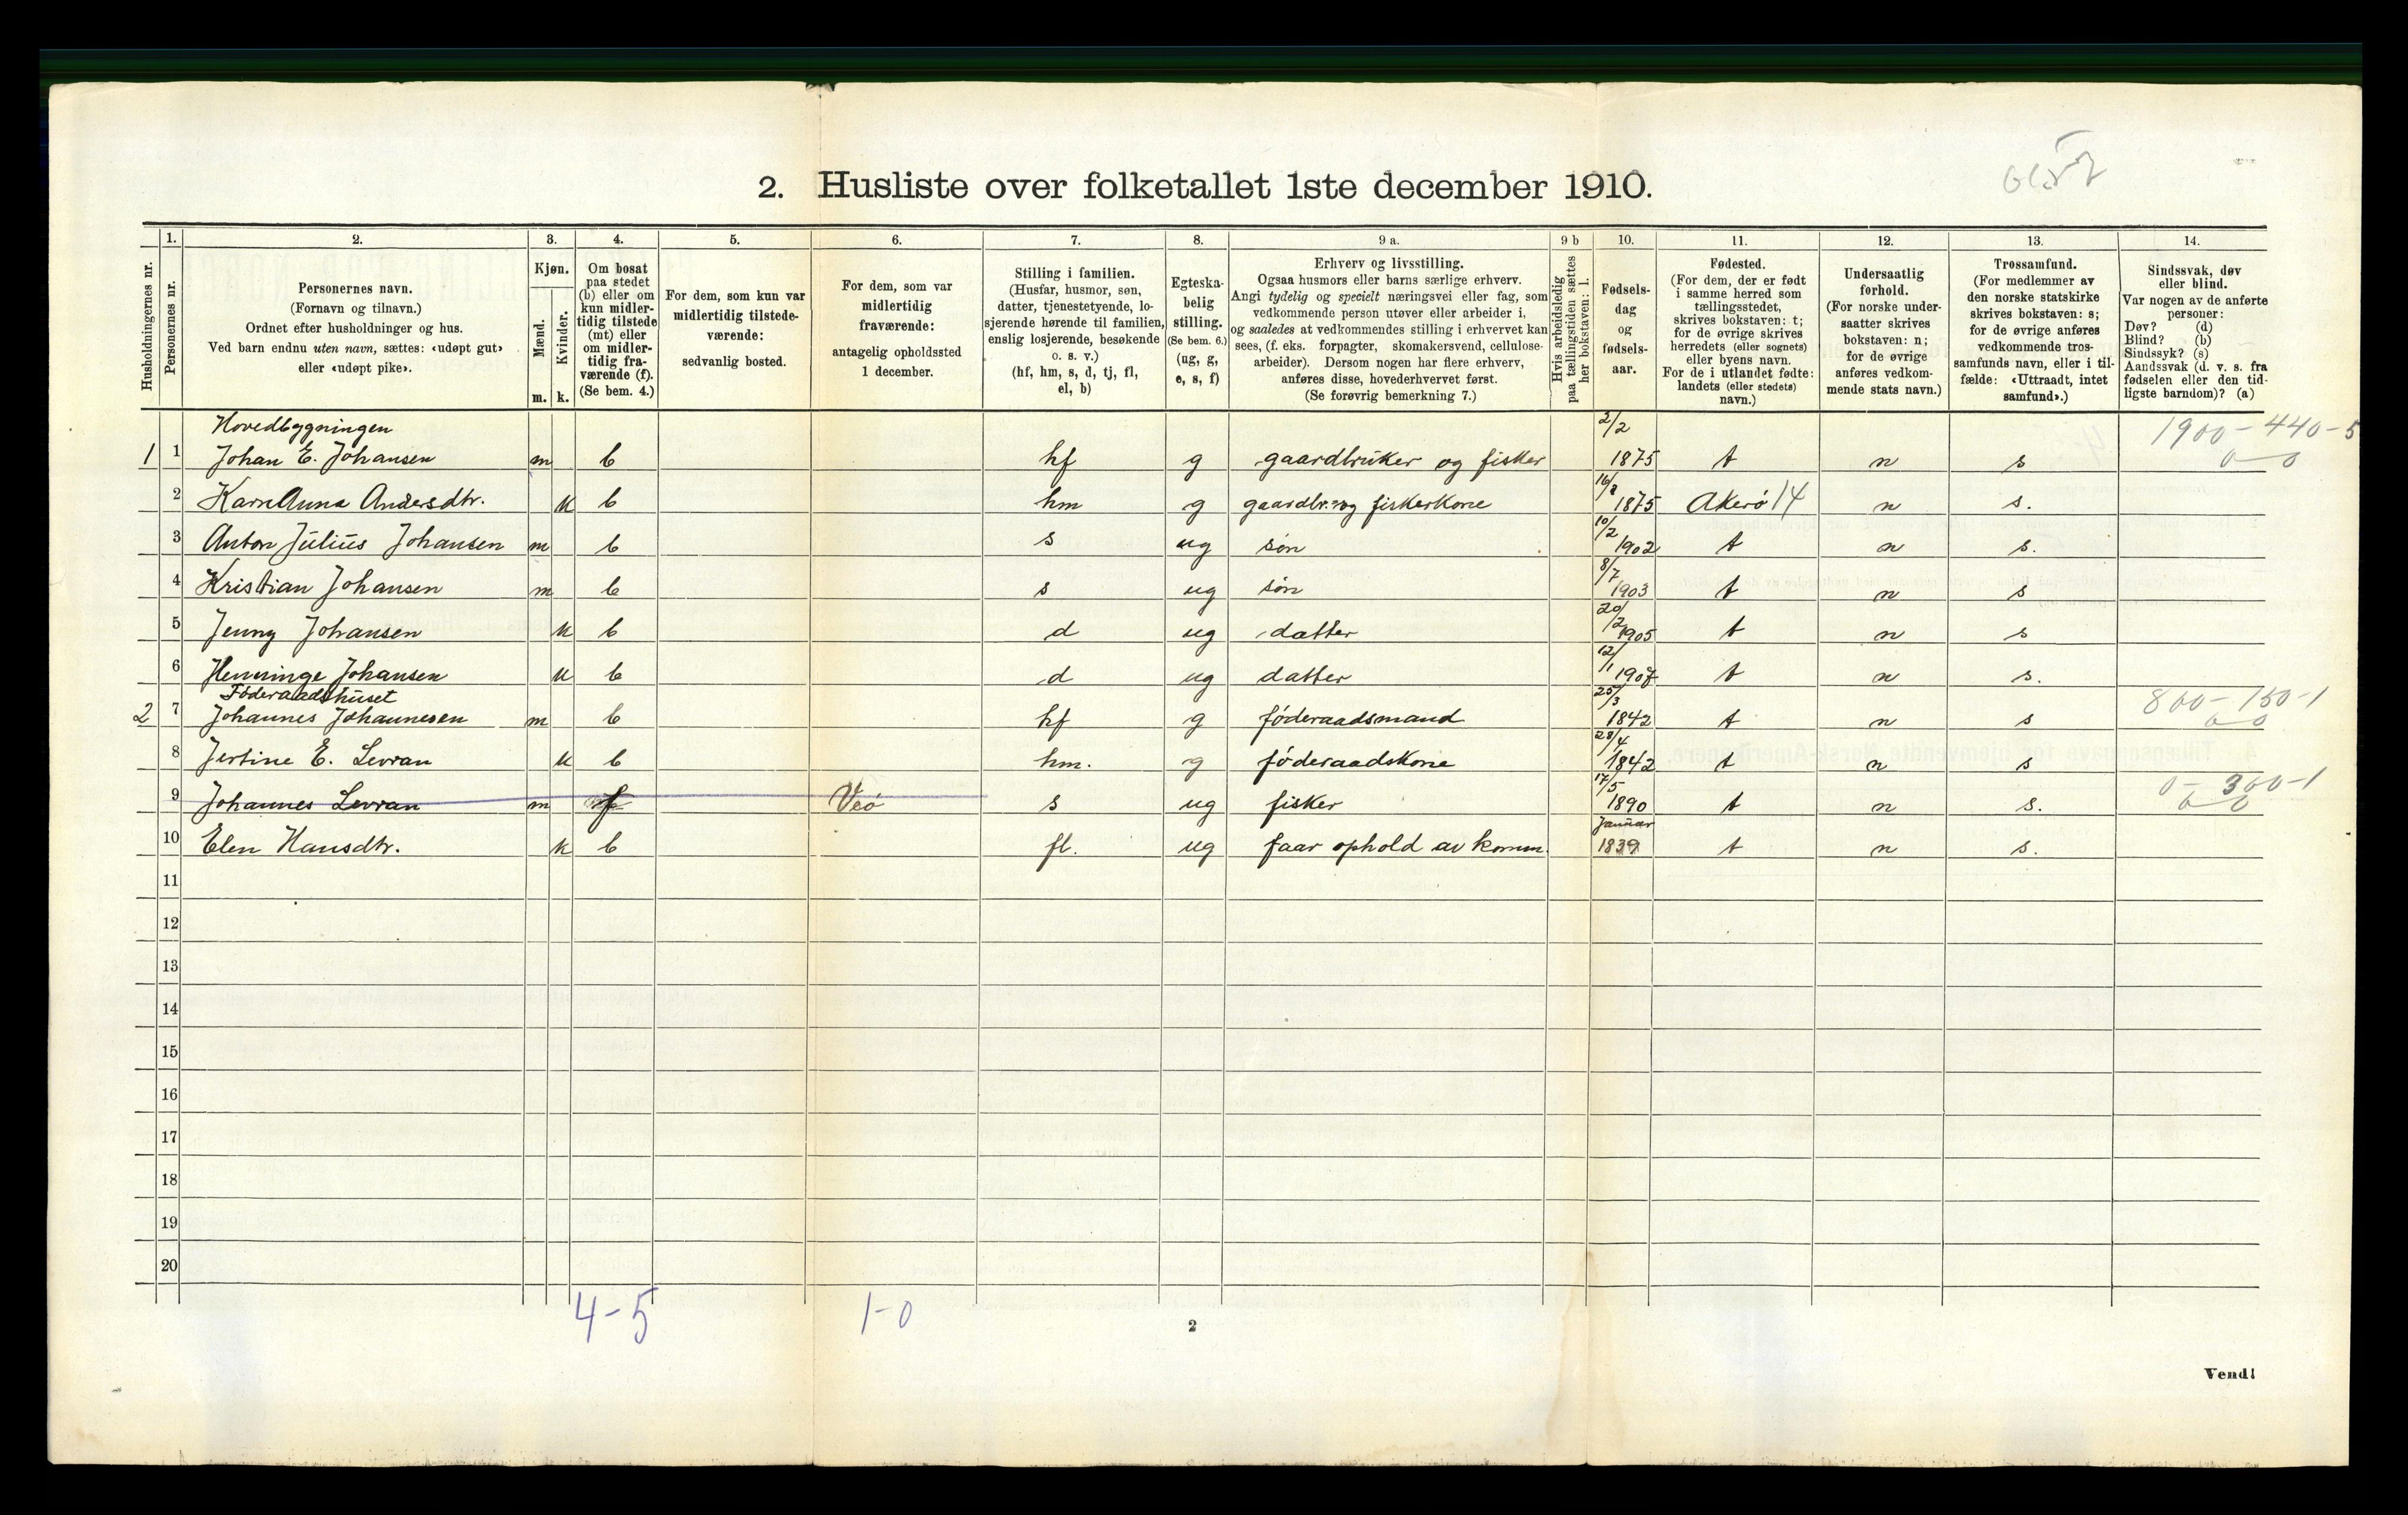 2. Husliste over folketallet 1ste december 1910.
Husholdningernes nr.
1. Personernes nr.
2. Personernes navn. (Fornavn og tilnavn.) Ordnet efter husholdninger og hus. Ved barn endnu uten navn, sættes: «udøpt gut» eller «udøpt pike».
3. Kjøn. Mænd. m. Kvinder. k.
4. Om bosat paa stedet (b) eller om kun midlertidig tilstede (mt) eller om midlertidig fraværende (f). (Se bem. 4.)
5. For dem, som kun var midlertidig tilstedeværende: sedvanlig bosted.
6. For dem, som var midlertidig fraværende: antagelig opholdssted 1 december.
7. Stilling i familien. (Husfar, husmor, søn, datter, tjenestetyende, losjerende hørende til familien, enslig losjerende, besøkende o. s. v.) (hf, hm, s, d, tj, fl, el, b)
8. Egteskabelig stilling. (Se bem. 6.) (ug, g, e, s, f)
9 a. Erhverv og livsstilling. Ogsaa husmors eller barns særlige erhverv. Angi tydelig og specielt næringsvei eller fag, som vedkommende person utøver eller arbeider i, og saaledes at vedkommendes stilling i erhvervet kan sees, (f. eks. forpagter, skomakersvend, cellulosearbeider). Dersom nogen har flere erhverv, anføres disse, hovederhvervet først. (Se forøvrig bemerkning 7.)
9 b Hvis arbeidsledig paa tællingstiden sættes her bokstaven: l.
10. Fødselsdag og fødselsaar.
11. Fødested. (For dem, der er født i samme herred som tællingsstedet, skrives bokstaven: t; for de øvrige skrives herredets (eller sognets) eller byens navn. For de i utlandet fødte: landets (eller stedets) navn.)
12. Undersaatlig forhold. (For norske undersaatter skrives bokstaven: n; for de øvrige anføres vedkommende stats navn.)
13. Trossamfund. (For medlemmer av den norske statskirke skrives bokstaven: s; for de øvrige anføres vedkommende trossamfunds navn, eller i tilfælde: «Uttraadt, intet samfund».)
14. Sindssvak, døv eller blind. Var nogen av de anførte personer: Døv? (d) Blind? (b) Sindssyk? (s) Aandssvak (d. v. s. fra fødselen eller den tidligste barndom)? (a)
Hovedbygningen
1 1 Johan E. Johansen m b hf g gaardbruker og fisker 2/2 1875 t n s 1900 - 440 - 5 0 0
2 Karn Anna Andersdtr. k b hm g gaardbr. og fiskerkone 16/8 1875 Akerö 14 n s.
3 Anton Julius Johansen m b s ug søn 10/2 1902 t n s.
4 Kristian Johansen m b s ug søn 8/7 1903 t n s
5 Jenny Johansen k b d ug datter 20/2 1905 t n s
6 Henninge Johansen k b d ug datter 12/1 1907 t n s.
Föderaadshuset
2 7 Johannes Johannesen m b hf g föderaadsmand 25/3 1842 t n s 800 - 150 - 1 0 0
8 Jertine E. Levran k b hm. g föderaadskone 28/4 1842 t n s
9 Johannes Levran m f Veö s ug fisker 17/5 1890 t n s. 0 - 300 - 1 0 0
10 Elen Hansdtr. k b fl. ug faar ophold av komm. Januar 1839 t n s.
11
12
13
14
15
16
17
18
19
20
4-5 1-0
2
Vend!